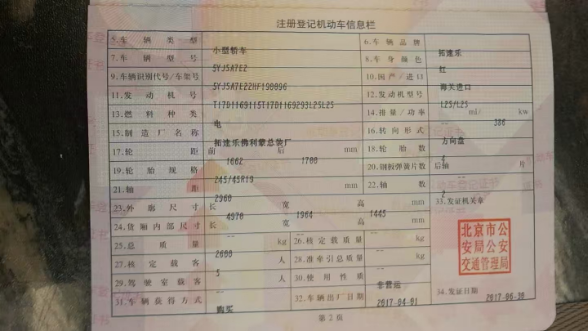 注册登记机动车信息栏
5.车辆类型 小型轿车 6.车辆品牌 拓速乐
7.车辆型号 5YJSA7E2 8.车身颜色 红
9.车辆识别代号/车架号 10.国产/进口 海关进口
11.发动机号 12.发动机型号 L2S/L2S
13.燃料种类 电 14.排量/功率 ml/ 386 kw
15.制造厂名称 拓速乐佛利蒙总装厂 16.转向形式 方向盘
17.轮距 前 1662 后 1700 mm 18.轮胎数 4
19.轮胎规格 245/45R19 20.钢板弹簧片数 后轴 片
21.轴距 2960 mm 22.轴数 2
23.外廓尺寸 长 4978 宽 1964 高 1445 mm 33.发证机关章
24.货厢内部尺寸 长 宽 高 mm
25.总质量 kg 26.核定载质量 kg
27.核定载客 5 人 28.准牵引总质量 kg
29.驾驶室载客 人 30.使用性质 非营运
31.车辆获得方式 购买 32.车辆出厂日期 2017-04-01 34.发证日期 2017-06-30
北京市公
安局公安
交通管理局
第2页